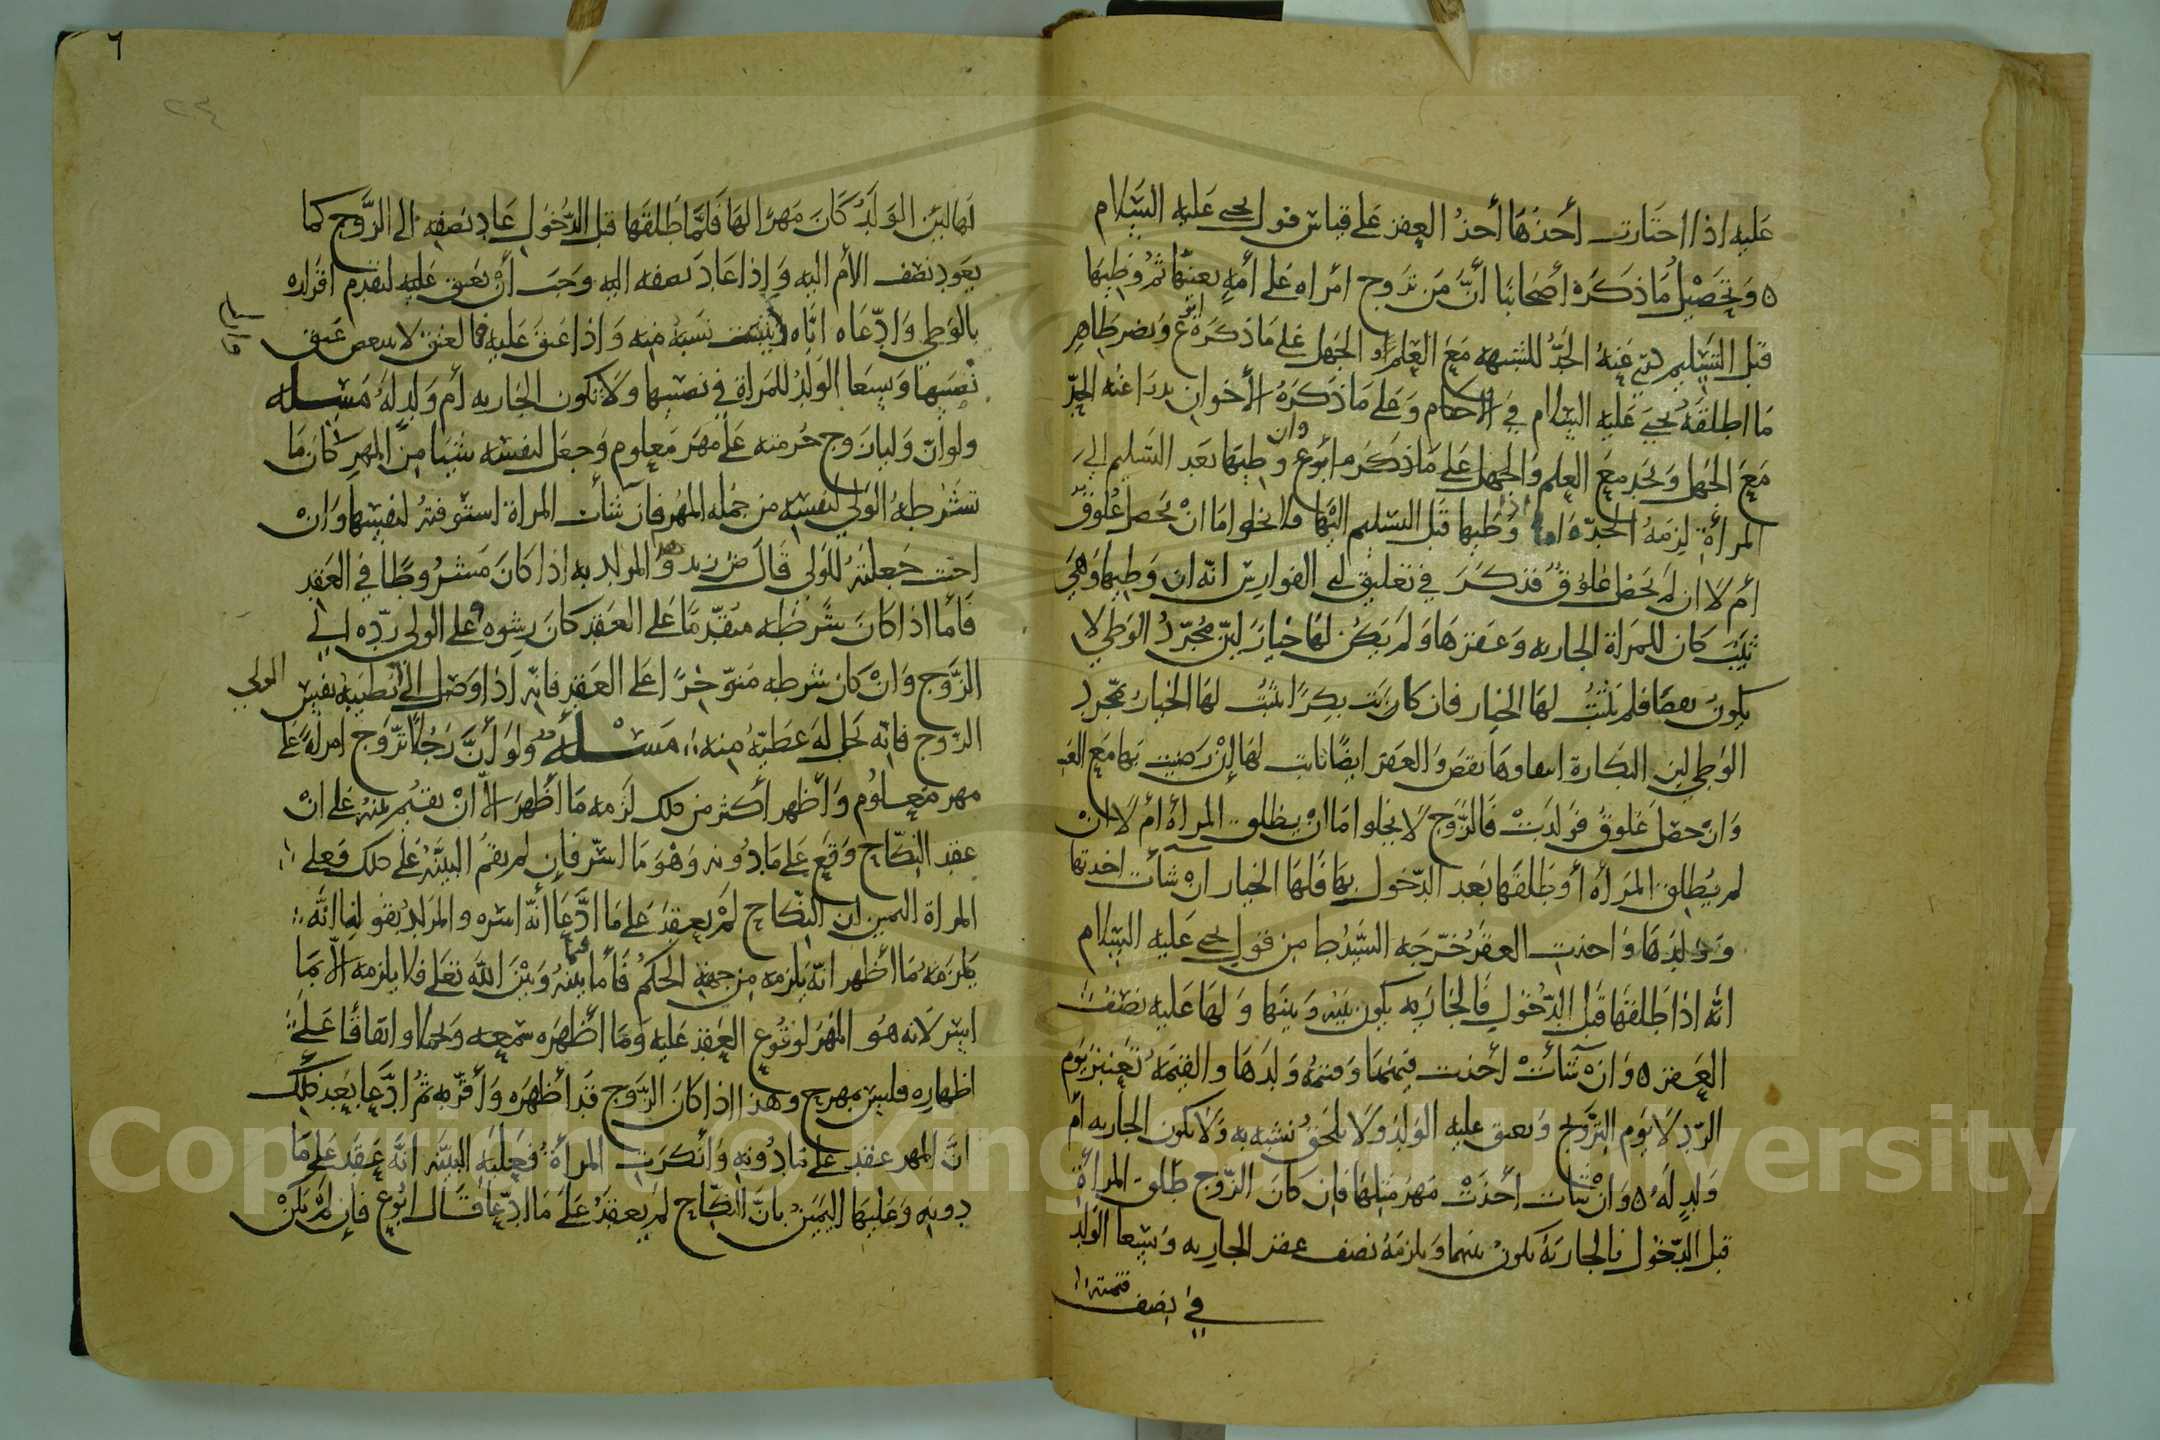 عليه اذا اختارت أخذها أخذ العقر على قياس قول يحيى عليه السلام
ه وتحصيل ما ذكره أصحابنا أن من تزوج امراه على أمة بعينها ثم وطيها
قبل التسليم عنه الحد للشبهه مع العلم او الجهل على ما ذكره ع وبصر ظاهر
ما اطلقه يحيى عليه السلام في الاحكام وعلى ما ذكره الأخوان يدرا عنه الحد
مع الجهل ويحد مع العلم والجهل على ما ذكر م ابو ع وان وطيها بعد التسليم الى
المرأة لزمه الحد ه واما اذا وطيها قبل التسليم اليها فلا يخلو اما ان يحصل علوق
أم لا ان لم يحصل علوق فذكر في تعليق ابي الفوارس انه ان وطيها وهي
ثيب كان للمراة الجاريه وعقرها ولم يكن لها خيار لئن مجرد الوطي لا
يكون نقصا فلم يثبت لها الخيار فان كانت بكرا ثبت لها الخيار بمجرد
الوطي لين البكارة وها نقص والعقر ايضا ثابت لها إن رضيت بها مع
وان حصل علوق فولدت فالزوج لا يخلو اما ان يطلق المرأة أم لا ان
لم يطلق المرأة أو طلقها بعد الدخول بها فلها الخيار ان شأت اخذتها
وولدها واخذت العقر خرجه السيد ط من قول يحيى عليه السلام
انه اذا طلقها قبل الدخول فالجاريه يكون بينه وبينها ولها عليه نصف
العقر ه وان شأت أخذت قيمتها وقيمة ولدها والقيمة تعتبر يوم
الرد لا يوم التزوج ويعتق عليه الولد ولا يلحق نسبه به ولا يكون الجاريه أم
ولد له ه وان شات أخذت مهر مثلها فان كان الزوج طلق المرأة
قبل الدخول فالجارية يكون بينهما ويلزمه نصف عقر الجاريه ويسعا الولد
في نصف قيمته
٦
٢٣
لها لين الولد كان مهرا لها فلما طلقها قبل الدخول عاد نصفه الى الزوج كما
يعود نصف الأم اليه وإذا عاد نصفه اليه وجب أن يعتق عليه لتقدم اقراره
بالوطي وادعاه اياه نسبه منه واذا عتق عليه فالعتق لا يتبعض عتق
نصيبها ويسعا الولد للمراة في نصيبها ولا تكون الجاريه أم ولد له مسله
ولو ان وليا زوج حرمته على مهر معلوم وجعل لنفسه شيا من المهر كان ما
تشرطه الولي لنفسه من جمله المهر فان شأت المراة استوفته لنفسها وان
احبت جعلته للولي قال ض زيد والمراد به اذا كان مشروطا في العقد
فأما اذا كان شرطه متقدما على العقد كان رشوه على الولي رده الى
الزوج وان كان شرطه متوخرا على العقد فانه اذا وصل الى الولي بطيبة نفس
الزوج فانه يحل له عطية منه مسلة ولو أن رجلا تزوج امراة على
مهر معلوم وأظهر أكثر من ذلك لزمه ما أظهر الا ان يقيم بينة على ان
عقد النكاح وقع على ما دونه وهو ما اسر فان لم يقم البينة على ذلك فعلى
المراة اليمين ان النكاح لم يعقد على ما ادعا أنه اسره والمراد بقولنا انه
يلزمه ما أظهر انه يلزمه من جهة الحكم فأما فيما بينه وبين الله تعلى فلا يلزمه الا بما
اسر لانه هو المهر لوقوع العقد عليه وما أظهره سمعه واتفاقا على
اظهاره فليس بمهرح وهذا اذا كان الزوج قد أظهره وأقر به ثم ادعا بعد ذلك
ان المهر عقد على ما دونه وأنكرت المرأة فعليه البينه انه عقد على ما
دونه وعليها اليمين بان النكاح لم يعقد على ما ادعا قال ابو ع فان لم يكن
Copyright © King Saud University